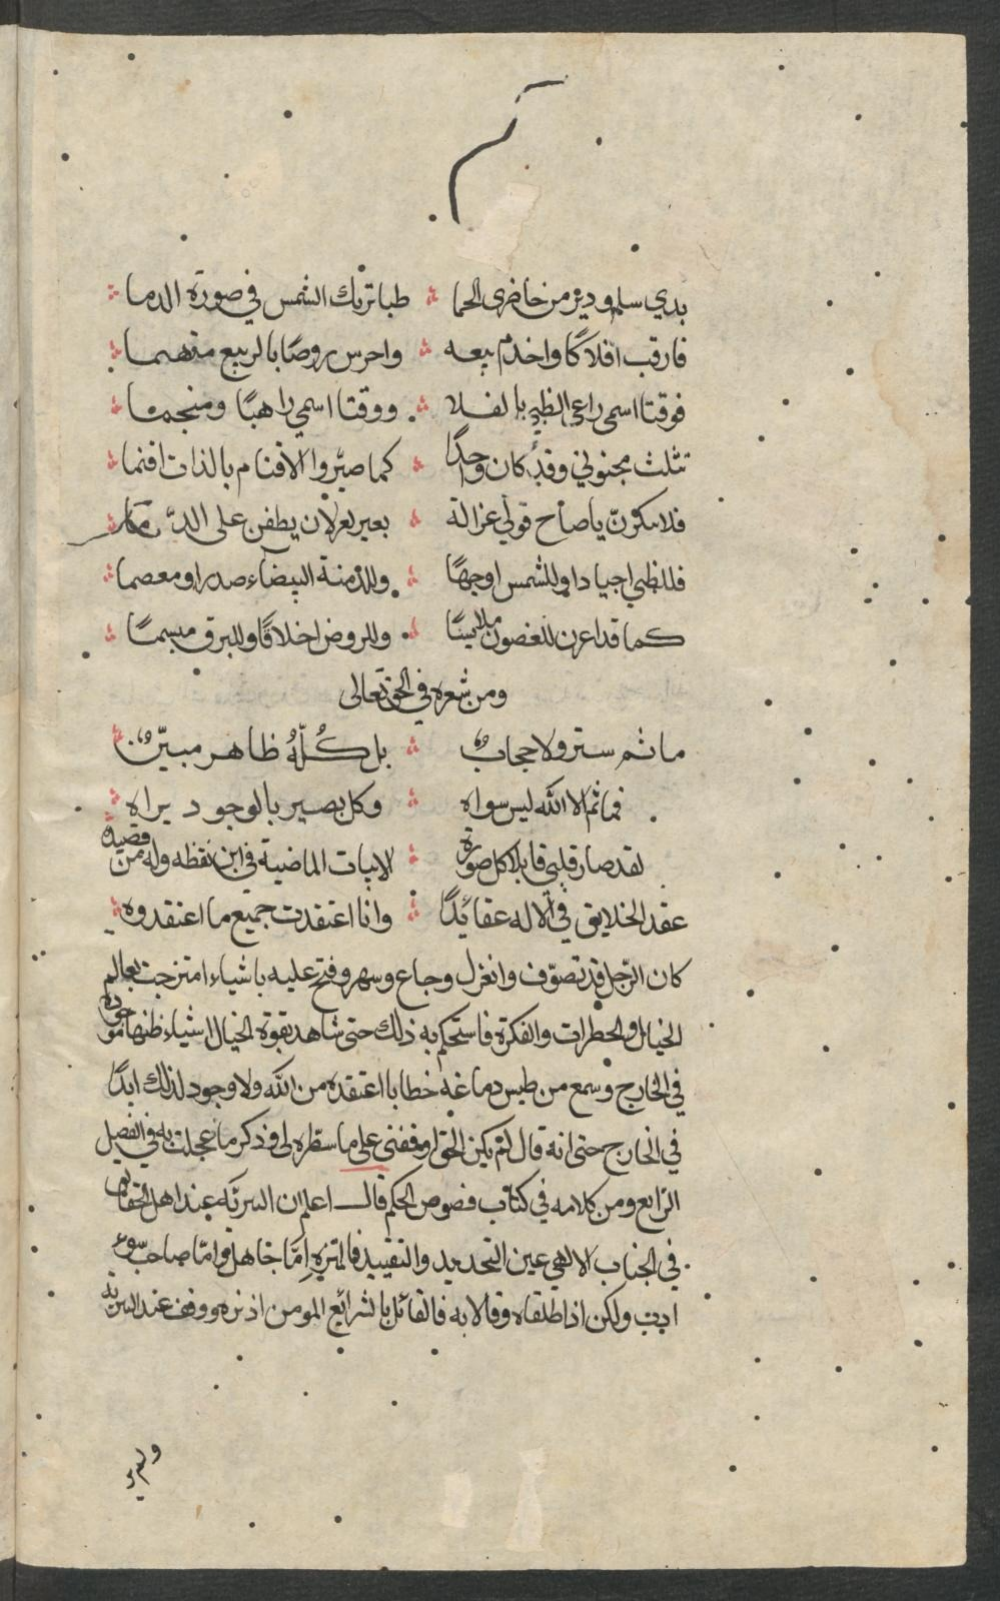 بدي سلم وديز من حاضري الحما طباتريك الشمس في صورة الدما
فارقب افلاكا واخدم بيعه واحرس روضًا بالربيع منمنما
فوقتا اسمى راعي الظبي بالفلا ووقتا اسمى راهبًا ومنجما
تثلث محبوبي وقد كان واحدًا كما صيّروا الاقنام بالذات اقنما
فلا تنكرن يا صاح قولي غزالة لغزلان يطفن على الدما
فللظبي اجيادا وللشمس اوجهًا وللدمنة البيضاء صدرا ومعصما
كما قد اعرن للغصون ملابسًا وللروض اخلاقًا وللبرق مبسمًا
ومن شعره في الحق تعالى
ما ثم ستر ولا حجاب بل كُلّهُ ظاهر مبيّن
فما ثم الا الله ليس سواه وكل بصير بالوجود يراه
لقد صار قلبي قابلا كل صورة الابيات الماضية في ابن نقطه وله من قصيدة
عقد الخلايق في الاله عقائدًا وانا اعتقدت جميع ما اعتقدوه
كان الرّجل قد تصوّف وانغزل وجاع وسهر وفتح عليه باشياء امتزجت بعالم
الخيال والخطرات والفكرة فاستحكم به ذلك حتى شاهد بقوة الخيال اشياء ظنها موجودة
في الخارج وسمع من طيس دماغه خطابا اعتقده من الله ولا وجود لذلك ابدًا
في الخارج حتى انه قال لم يكن الحق اوقفني على ما سطره لي وذكر ما عجلت به في الفصل
الرّابع ومن كلامه في كتاب فصوص الحكم قال اعلم ان التنزيه عند اهل الحقايق
في الجناب الالهي عين التحديد والتقييد فالمنزه اِمّا جاهل واِمّا صاحب سوء
ادب ولكن اذا اطلقاه وقالا به فالقائل بالشرائع المومن اذ نزه ووقف عند التنزيه
ولم ير